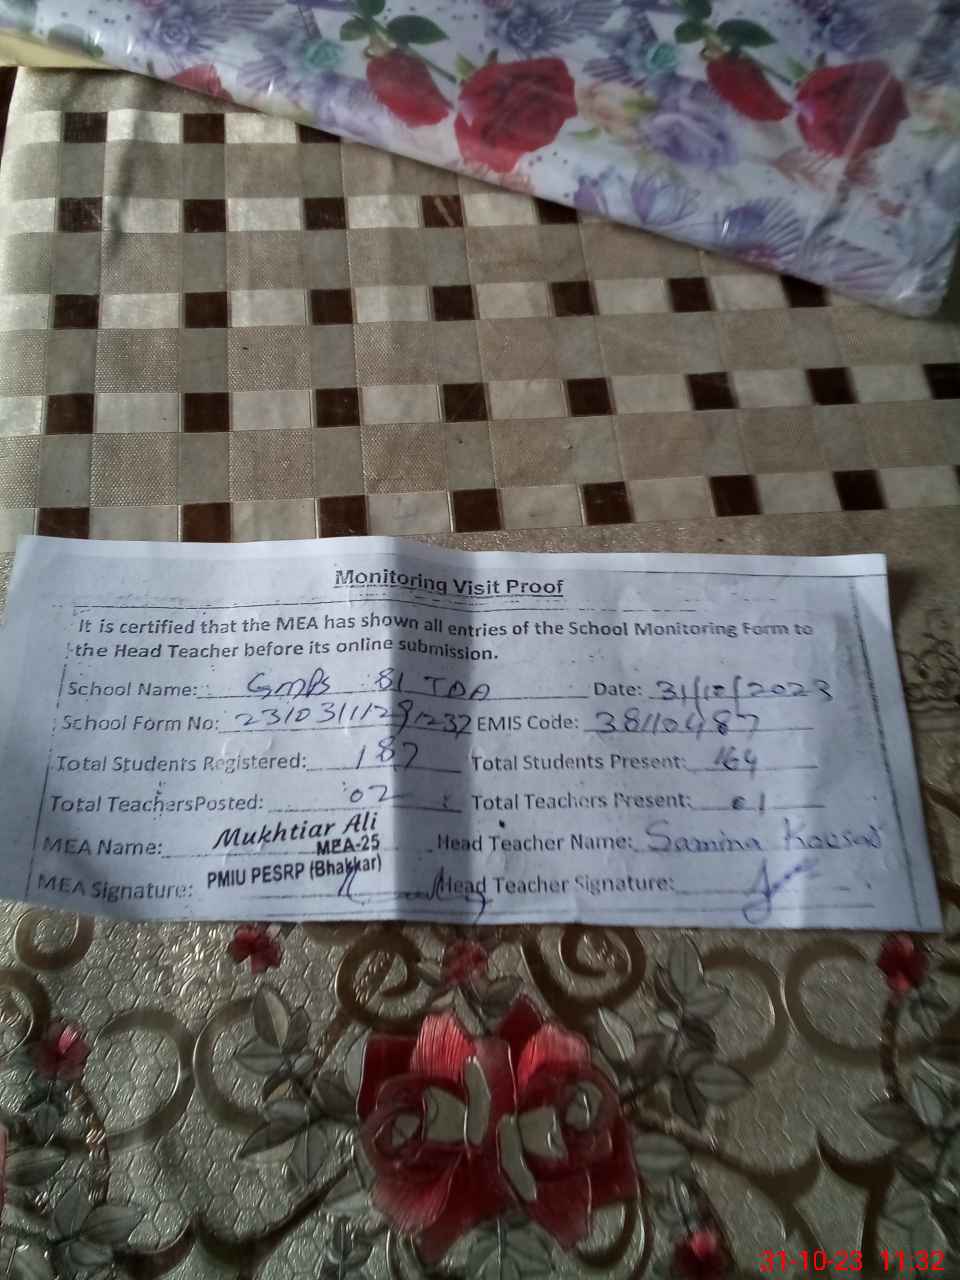 Monitoring Visit Proof
It is certified that the MEA has shown all entries of the School Monitoring Form to
the Head Teacher before its online submission.
School Name: GMPS 81 TDA Date: 31/10/2023
School Form No: 23103111291237 EMIS Code: 38110487
Total Students Registered: 187 Total Students Present: 164
Total TeachersPosted: 02 Total Teachers Present: 01
MEA Name: Mukhtiar Ali Head Teacher Name: Samina Kousar
MEA-25
MEA Signature: PMIU PESRP (Bhakkar) Head Teacher Signature:
31-10-23 11:32